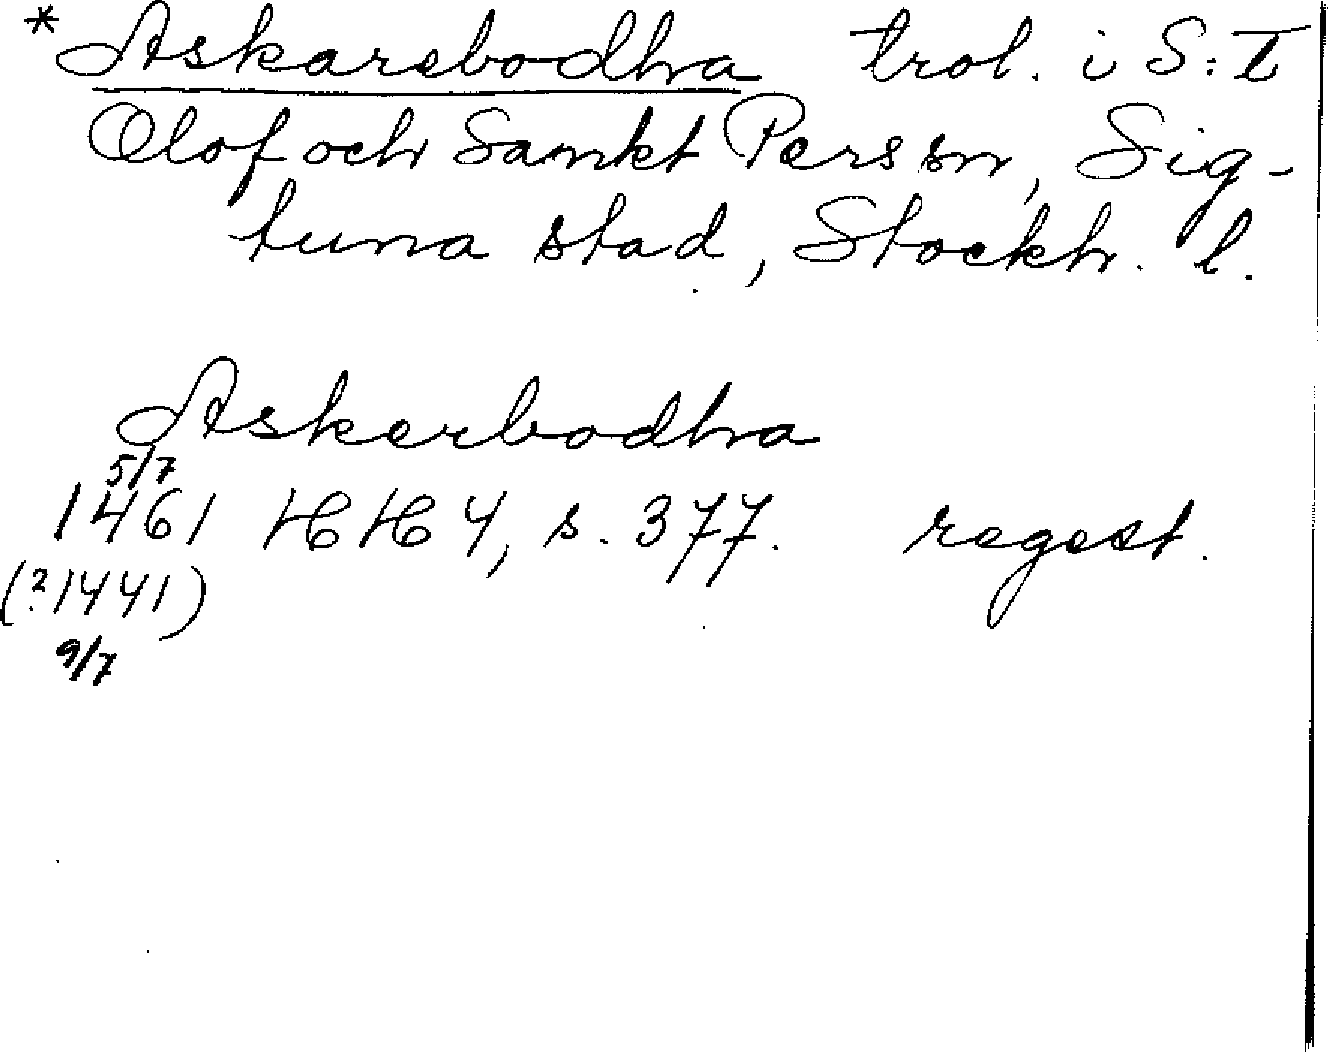 * Askarebodha trol. i S:t
Olof och Sankt Pers sn, Sig-
tuna stad, Stockh. l.
Askerbodha
5/7
1461 HH 4, s. 377. regest.
(?1441)
9/7